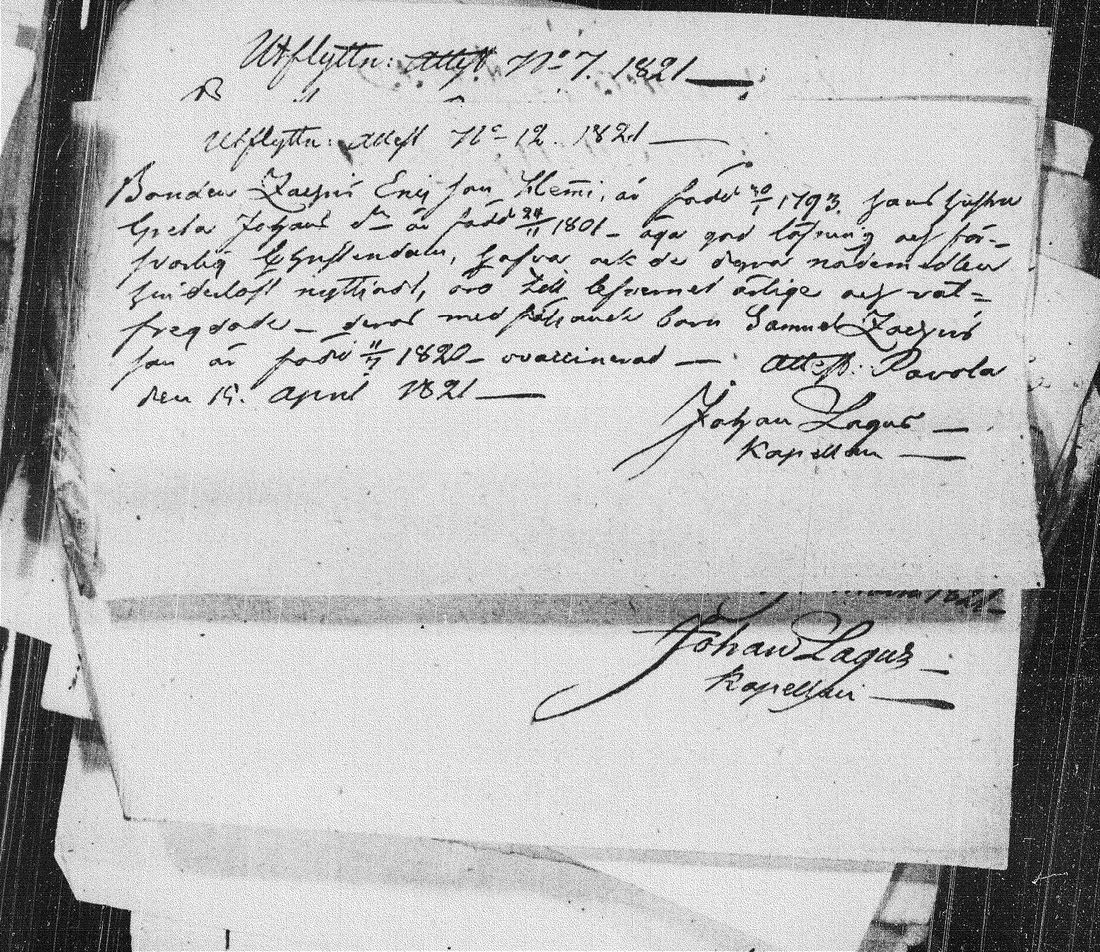 Utflyttn: Attest No 7. 1821
Utflyttn: Attest No 12. 1821
Bonden Zachris Erics son Hemi, är född 30/1 1793. hans hustru
Greta Johans dr är född 24/11 1801 - äga god läsning och för-
svarlig Christendom, hafva ock de dyra nådemedlen
hinderlöst nyttjadt, äro till lefvernet ärlige och väl=
fregdade - deras med barn Samuel Zachris
son är född 11/7 1820 - vaccinerad - Attest: Pavola
den 15. April 1821
Johan Lagus
Kapellan
1821
Johan Lagus
Kapellan